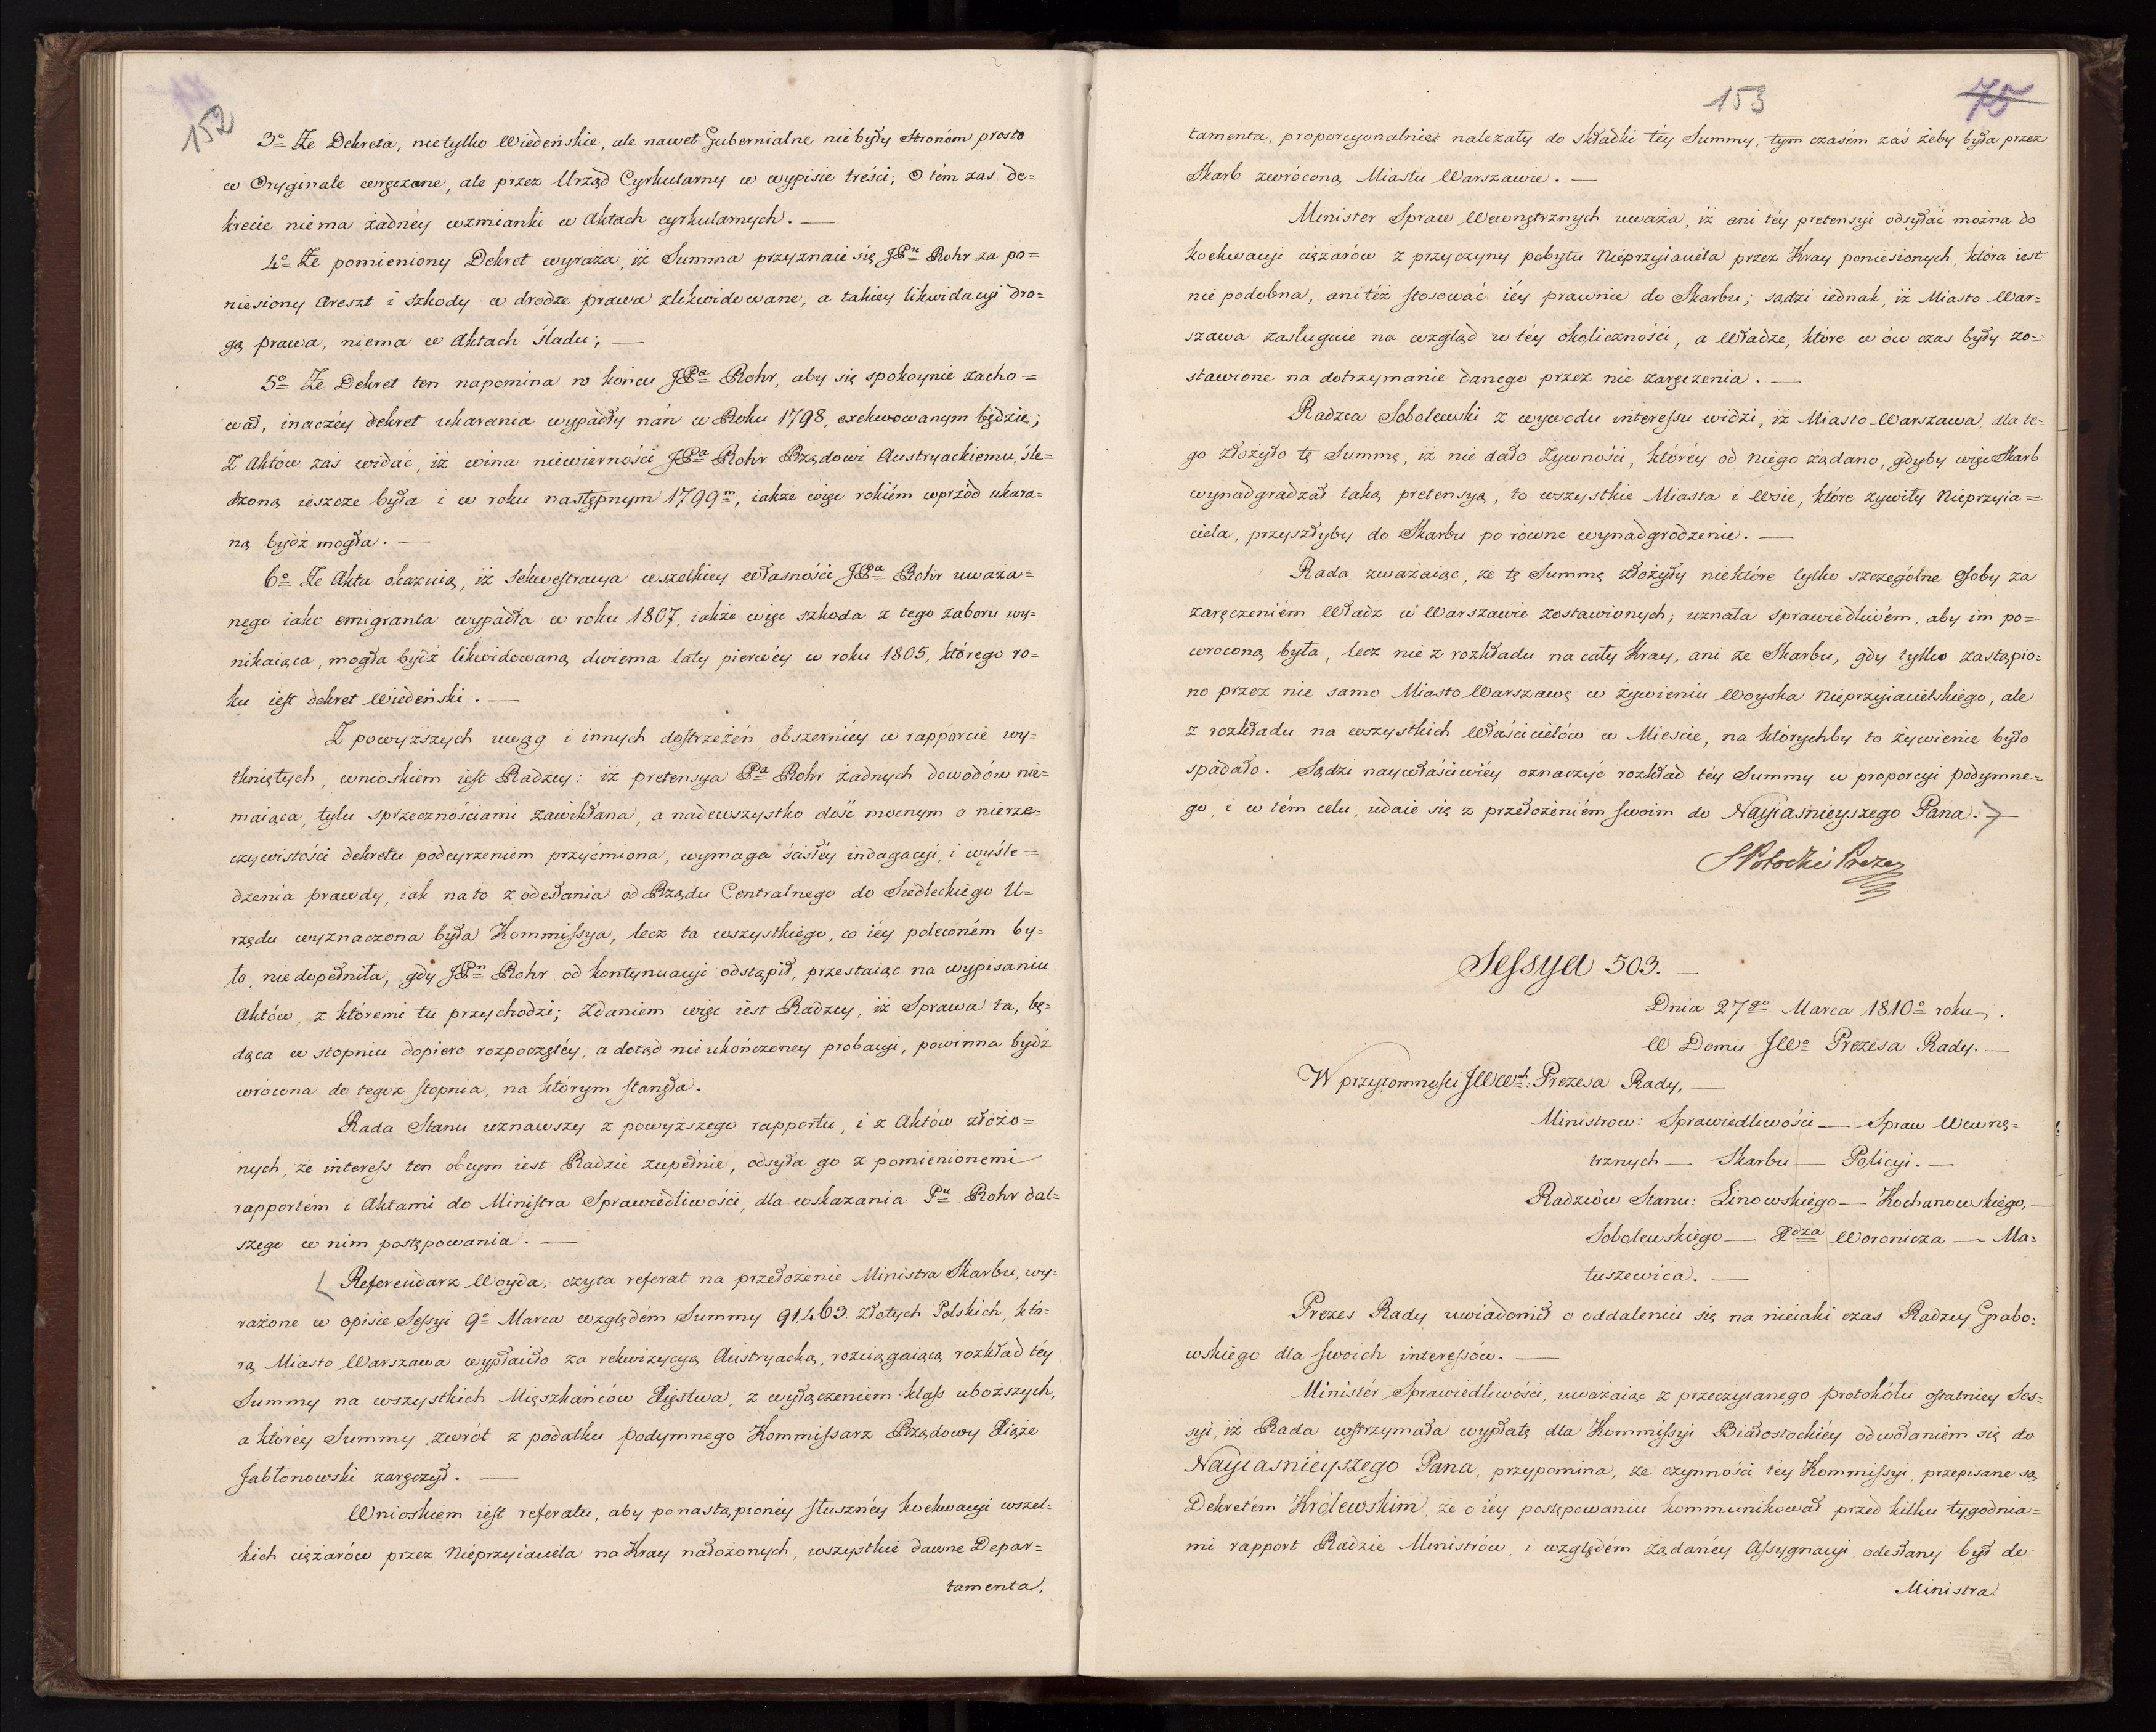 152
3º Że Dekreta, nietylko Wiedeńskie, ale nawet Gubernialne niebyły Stronóm prosto
w Oryginale wręczone, ale przez Urząd Cyrkularny w wypisie tréści; O tém zaś de=
krecie niema żadnéy wzmianki w Aktach cyrkularnych. —
4º Że pomieniony Dekret wyraża, iż Summa przyznaie się JPu Rohr za po=
niesiony Areszt i szkody w drodze prawa zlikwidowane, a takiey likwidacyi dro=
gą prawa, niema w Aktach śladu; —
5º Że Dekret ten napomina w końcu JPa Rohr, aby się spokoynie zacho=
wał, inaczéy dekret ukarania wypadły nań w Roku 1798, exekwowanym będzie;
Z Aktów zaś widać, iż wina niewierności JPa Rohr Rządowi Austryackiemu, śle=
dzoną ieszcze była i w roku następnym 1799m, iakże więc rokiém wprzód ukara=
ną bydź mogła. —
6º Że Akta okazuią, iż Sekwestracya wszelkiey własności JPa Rohr uważa=
nego iako emigranta wypadła w roku 1807, iakże więc szkoda z tego zaboru wy=
nikaiąca, mogła bydź likwidowaną dwiema laty pierwéy w roku 1805, którego ro=
ku iest dekret Wiedeński. —
Z powyższych uwag i innych dostrzeżeń obszerniéy w rapporcie wy=
tkniętych, wnioskiem iest Radzcy: iż pretensya Pa Rohr żadnych dowodów nie=
maiąca, tylu sprzecznościami zawikłana, a nadewszystko dość mocnym o nierze=
czywistości dekretu podeyrzeniem przyćmiona, wymaga ścisłéy indagacyi, i wyśle=
dzenia prawdy, iak na to z odesłania od Rządu Centralnego do Siedleckiego U=
rzędu wyznaczona była Kommissya, lecz ta wszystkiego, co iéy poleconém by=
ło, niedopełniła, gdy JPn Rohr od kontynuacyi odstąpił, przestaiąc na wypisaniu
Aktów, z któremi tu przychodzi; Zdaniem więc iest Radzcy, iż Sprawa ta, bę=
dąca w stopniu dopiero rozpoczętéy, a dotąd nieukończoney probacyi, powinna bydź
wrócona do tegoż stopnia, na którym stanęła.
Rada Stanu uznawszy z powyższego rapportu, i z Aktów złożo=
nych, że interess ten obcym iest Radzie zupełnie, odsyła go z pomienionemi
rapportém i Aktami do Ministra Sprawiedliwości, dla wskazania Pu Rohr dal=
szego w nim postępowania. —
Referendarz Woyda, czyta referat na przełożenie Ministra Skarbu, wy=
rażone w opisie Sessyi 9º Marca względém Summy 91,463. Złotych Polskich, któ=
rą Miasto Warszawa wypłaciło za rekwizycyą Austryacką, rozciągaiącą rozkład téy
Summy na wszystkich Mięszkańców Xięstwa, z wyłączeniem klass uboższych,
a któréy Summy zwrót z podatku podymnego Kommissarz Rządowy Xiąże
Jabłonowski zaręczył. —
Wnioskiem iest referatu, aby ponastąpionéy słusznéy koekwacyi wszel=
kich ciężarów przez Nieprzyiaciela na Kray nałożonych, wszystkie dawne Depar=
tamenta,
153
75
tamenta, proporcyonalnie należały do składki téy Summy, tym czasém zaś żeby była przez
Skarb zwróconą Miastu Warszawie. —
Minister Spraw Wewnętrznych uważa, iż ani téy pretensyi odsyłać można do
koekwacyi ciężarów z przyczyny pobytu Nieprzyiaciela przez Kray poniesionych, która iest
nie podobna, ani téż stosować iéy prawnie do Skarbu; sądzi iednak, iż Miasto War=
szawa zasługuie na wzgląd w téy okoliczności, a Władze, które w ów czas były zo=
stawione na dotrzymanie danego przez nie zaręczenia. —
Radzca Sobolewski z wywodu interessu widzi, iż Miasto Warszawa dla te=
go złożyło tę Summę, iż nie dało Żywności, któréy od niego żądano, gdyby więc Skarb
wynadgradzał taką pretensyą, to wszystkie Miasta i Wsie, które żywiły Nieprzyia=
ciela, przyszłyby do Skarbu po równe wynadgrodzenie. —
Rada zważaiąc, że tę Summę złożyły niektóre tylko szczególne Osoby za
zaręczeniém Władz w Warszawie zostawionych; uznała sprawiedliwém, aby im po=
wroconą była, lecz nie z rozkładu na cały Kray, ani ze Skarbu, gdy tylko zastąpio=
no przez nie samo Miasto Warszawę w żywieniu Woyska Nieprzyiacielskiego, ale
z rozkładu na wszystkich Właścicielów w Mieście, na którychby to żywienie było
spadało. Sądzi naywłaściwiéy oznaczyć rozkład téy Summy w proporcyi podymne=
go, i w tém celu, udaie się z przełożeniém swoim do Nayiaśnieyszego Pana. —
SPotocki Prezes
Sessya 503. —
Dnia 27go Marca 1810º roku.
W Domu JWo Prezesa Rady. —
W przytomności JWWch: Prezesa Rady, —
Ministrow: Sprawiedliwości — Spraw Wewnę=
trznych — Skarbu — Policyi. —
Radzców Stanu: Linowskiego — Kochanowskiego, —
Sobolewskiego — Xdza Woronicza — Ma=
tuszewica. —
Prezes Rady uwiadomił o oddaleniu się na nieiaki czas Radzcy Grabo=
wskiego dla swoich interessów. —
Ministér Sprawiedliwości, uważaiąc z przeczytanego protokółu ostatniey Ses=
syi, iż Rada wstrzymała wypłatę dla Kommissyi Białostockiéy odwołaniem się do
Nayiaśnieyszego Pana, przypomina, że czynności téy Kommissyi przepisane są
Dekretém Królewskim, że o iéy postępowaniu kommunikował przed kilku tygodnia=
mi rapport Radzie Ministrów, i względém żądanéy Assygnacyi odesłany był do
Ministra